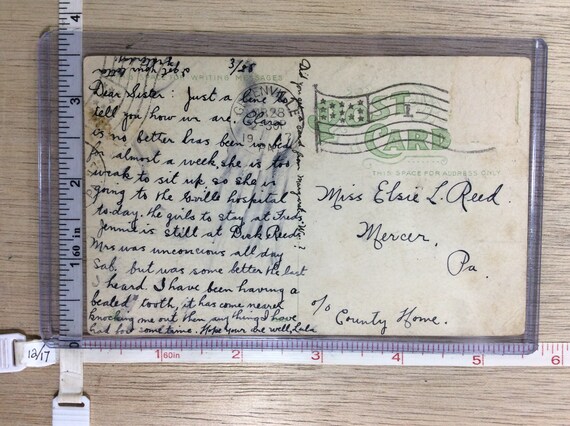 3/28
I got your letter
FOR WRITING MESSAGES
Dear Sister: Just a line to
tell you how we are. Clara
is no better has been in bed
for almost a week, she is too
weak to sit up. so she is
going to the Gville hospital
today. the girls to stay at Freds.
Jennie is still at Dick Reeds
Mrs was unconcious all day
Sab. but was some better the last
I heard. I have been having a
bealed tooth, it has come nearer
knocking me out then anything I have
had for some time. Hope your are well Lula
Did you get a card from Margaret
GREENVILLE
28
19 7
1
POST
CARD
THIS SPACE FOR ADDRESS ONLY
Miss Elsie L. Reed.
Mercer,
Pa.
c/o
County Home.
4
3
2
1 60in
12/17
1 60in
2
3
4
5
6